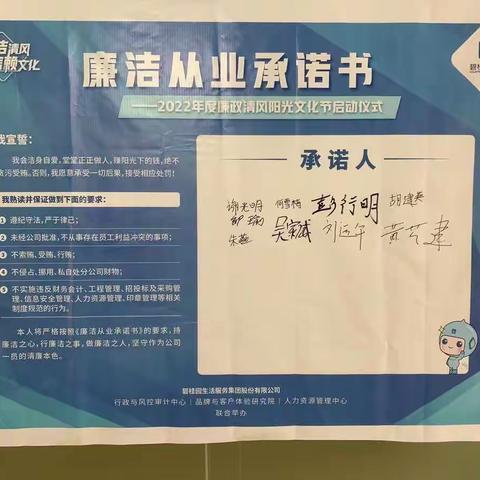 清风
文化
廉洁从业承诺书
——2022年度廉政清风阳光文化节启动仪式
我宣誓：
我会洁身自爱，堂堂正正做人，赚阳光下的钱，绝不
贪污受贿。否则，我愿意承受一切后果，接受相应处罚！
我熟读并保证做到下面的要求：
1 遵纪守法，严于律己；
2 未经公司批准，不从事存在员工利益冲突的事项；
3 不索贿、受贿、行贿；
4 不侵占、挪用、私自处分公司财物；
5 不实施违反财务会计、工程管理、招投标及采购管
理、信息安全管理、人力资源管理、印章管理等相关
制度规范的行为。
本人将严格按照《廉洁从业承诺书》的要求，持
廉洁之心，行廉洁之事，做廉洁之人，坚守作为公司
一员的清廉本色。
承诺人
谢光明 何雪梅 彭行明 胡建英
朱燕 刘运午 黄艺建
碧桂园生活服务集团股份有限公司
行政与风控审计中心｜品牌与客户体验研究院｜人力资源管理中心
联合举办